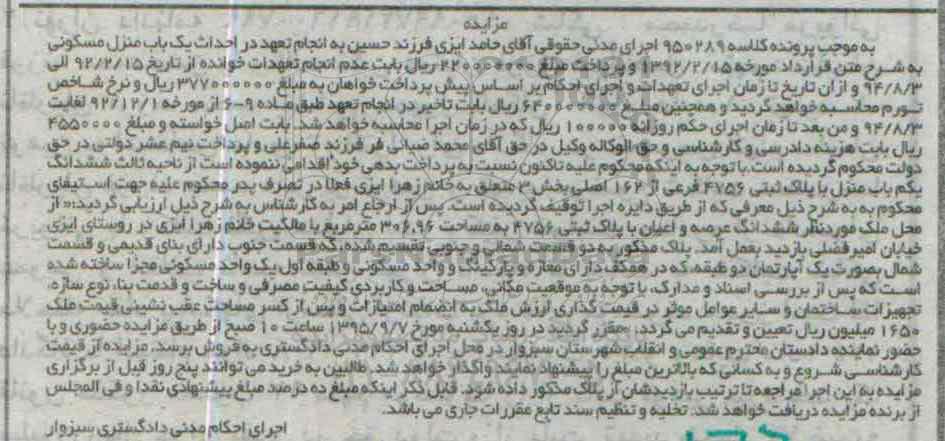 مزایده
به موجب پرونده کلاسه ۹۵۰۲۸۹ اجرای مدنی حقوقی آقای حامد ایزی فرزند حسین به انجام تعهد در احداث یک باب منزل مسکونی
به شرح متن قرارداد مورخه ۱۳۹۲/۲/۱۵ و پرداخت مبلغ ۲۲۰۰۰۰۰۰۰ ریال بابت عدم انجام تعهدات خوانده از تاریخ ۹۲/۲/۱۵ الی
۹۴/۸/۳ و از آن تاریخ تا زمان اجرای تعهدات و اجرای احکام بر اساس پیش پرداخت خواهان به مبلغ ۳۷۷۰۰۰۰۰۰ ریال و نرخ شاخص
تورم محاسبه خواهد گردید و همچنین مبلغ ۶۴۰۰۰۰۰۰ ریال بابت تاخیر در انجام تعهد طبق ماده ۹-۶ از مورخه ۹۲/۱۲/۱ لغایت
۹۴/۸/۳ و من بعد تا زمان اجرای حکم روزانه ۱۰۰۰۰۰ ریال که در زمان اجرا محاسبه خواهد شد. بابت اصل خواسته و مبلغ ۴۵۵۰۰۰۰
ریال بابت هزینه دادرسی و کارشناسی و حق الوکاله وکیل در حق آقای محمد ضیائی فر فرزند صفرعلی و پرداخت نیم عشر دولتی در حق
دولت محکوم گردیده است. با توجه به اینکه محکوم علیه تاکنون نسبت به پرداخت بدهی خود اقدامی ننموده است از ناحیه ثالث ششدانگ
یکم باب منزل با پلاک ثبتی ۴۷۵۶ فرعی از ۱۶۲ اصلی بخش ۳ متعلق به خانم زهرا ایزی فعلا در تصرف پدر محکوم علیه جهت استیفای
محکوم به به شرح ذیل معرفی که از طریق دایره اجرا توقیف گردیده است. پس از ارجاع امر به کارشناس به شرح ذیل ارزیابی گردید:« از
محل ملک موردنظر ششدانگ عرصه و اعیان با پلاک ثبتی ۴۷۵۶ به مساحت ۳۰۶.۹۶ مترمربع با مالکیت خانم زهرا ایزی در روستای ایزی
خیابان امیرفضلی بازدید بعمل آمد. پلاک مذکور به دو قسمت شمالی و جنوبی تقسیم شده، که قسمت جنوب دارای بنای قدیمی و قسمت
شمال بصورت یک آپارتمان دو طبقه، که در همکف دارای مغازه و پارکینگ و واحد مسکونی و طبقه اول یک واحد مسکونی مجزا ساخته شده
است که پس از بررسی اسناد و مدارک، با توجه به موقعیت مکانی، مساحت و کاربردی کیفیت مصرفی و ساخت و قدمت بنا، نوع سازه،
تجهیزات ساختمان و سایر عوامل موثر در قیمت گذاری ارزش ملک به انضمام امتیازات و پس از کسر مساحت عقب نشینی قیمت ملک
۱۶۵۰ میلیون ریال تعیین و تقدیم می گردد.» مقرر گردید در روز یکشنبه مورخ ۱۳۹۵/۹/۷ ساعت ۱۰ صبح از طریق مزایده حضوری و با
حضور نماینده دادستان محترم عمومی و انقلاب شهرستان سبزوار در محل اجرای احکام مدنی دادگستری به فروش برسد. مزایده از قیمت
کارشناسی شروع و به کسانی که بالاترین مبلغ را پیشنهاد نمایند واگذار خواهد شد. طالبین به خرید می توانند پنج روز قبل از برگزاری
مزایده به این اجرا مراجعه تا ترتیب بازدیدشان از پلاک مذکور داده شود. قابل ذکر اینکه مبلغ ده درصد مبلغ پیشنهادی نقدا و فی المجلس
از برنده مزایده دریافت خواهد شد. تخلیه و تنظیم سند تابع مقررات جاری می باشد.
اجرای احکام مدنی دادگستری سبزوار